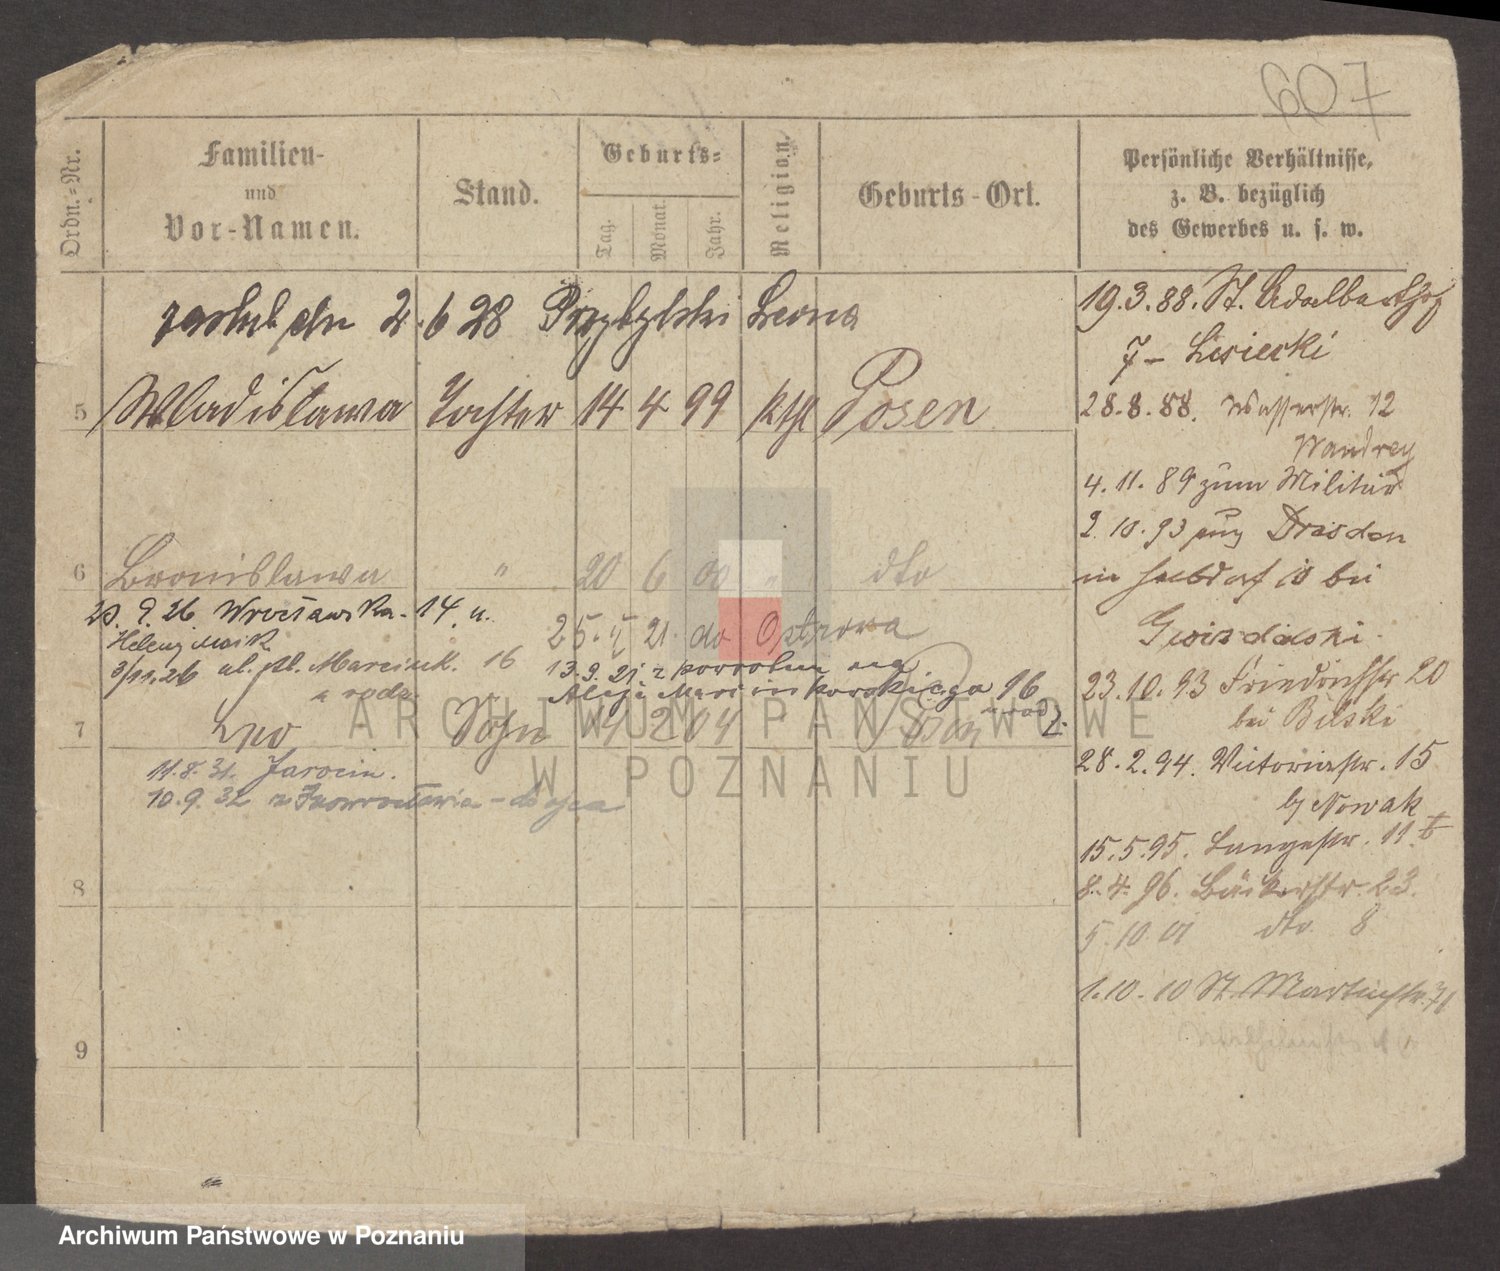 607
Ordn.-Nr.
Familien-
und
Vor-Namen.
Stand.
Geburts-
Tag.
Monat.
Jahr.
Religion.
Geburts-Ort.
Persönliche Verhältnisse,
z. B. bezüglich
des Gewerbes u. s. w.
2.6 28 Przybylski Leona
5 Wladislawa Tochter 14 4 99 kth Posen
6 Bronislawa " 20 6 00 " dto
23. 9. 26 Wrocławska - 14 u.
25. 5 21. do Ostrowa
3/11.26 ul. pl. Marcink. 16
13.9.21 z powrotem na
Aleje Marcinkowskiego 16
7 Leo Sohn 4 2 04 " Posen
11.8.31. Jarocin.
10.9.32 z Inowrocławia -
8
9
19.3.88. St. Adalberthof
7 - Lisiecki
28.8.88. Wasserstr. 12
Wandrey
4.11.89 zum Militär
2.10.93 zuz Dresden
in 10 bei
Gwizdalski
23.10.93 Friedrichstr 20
bei Bilski
28.2.94. Victoriastr. 15
b/ Nowak
15.5.95. Langestr. 11
8.4.96. Bäckerstr. 23.
5.10.01 dto 8
1.10.10 St. Martinstr. 71
ARCHIWUM PAŃSTWOWE
W POZNANIU
Archiwum Państwowe w Poznaniu